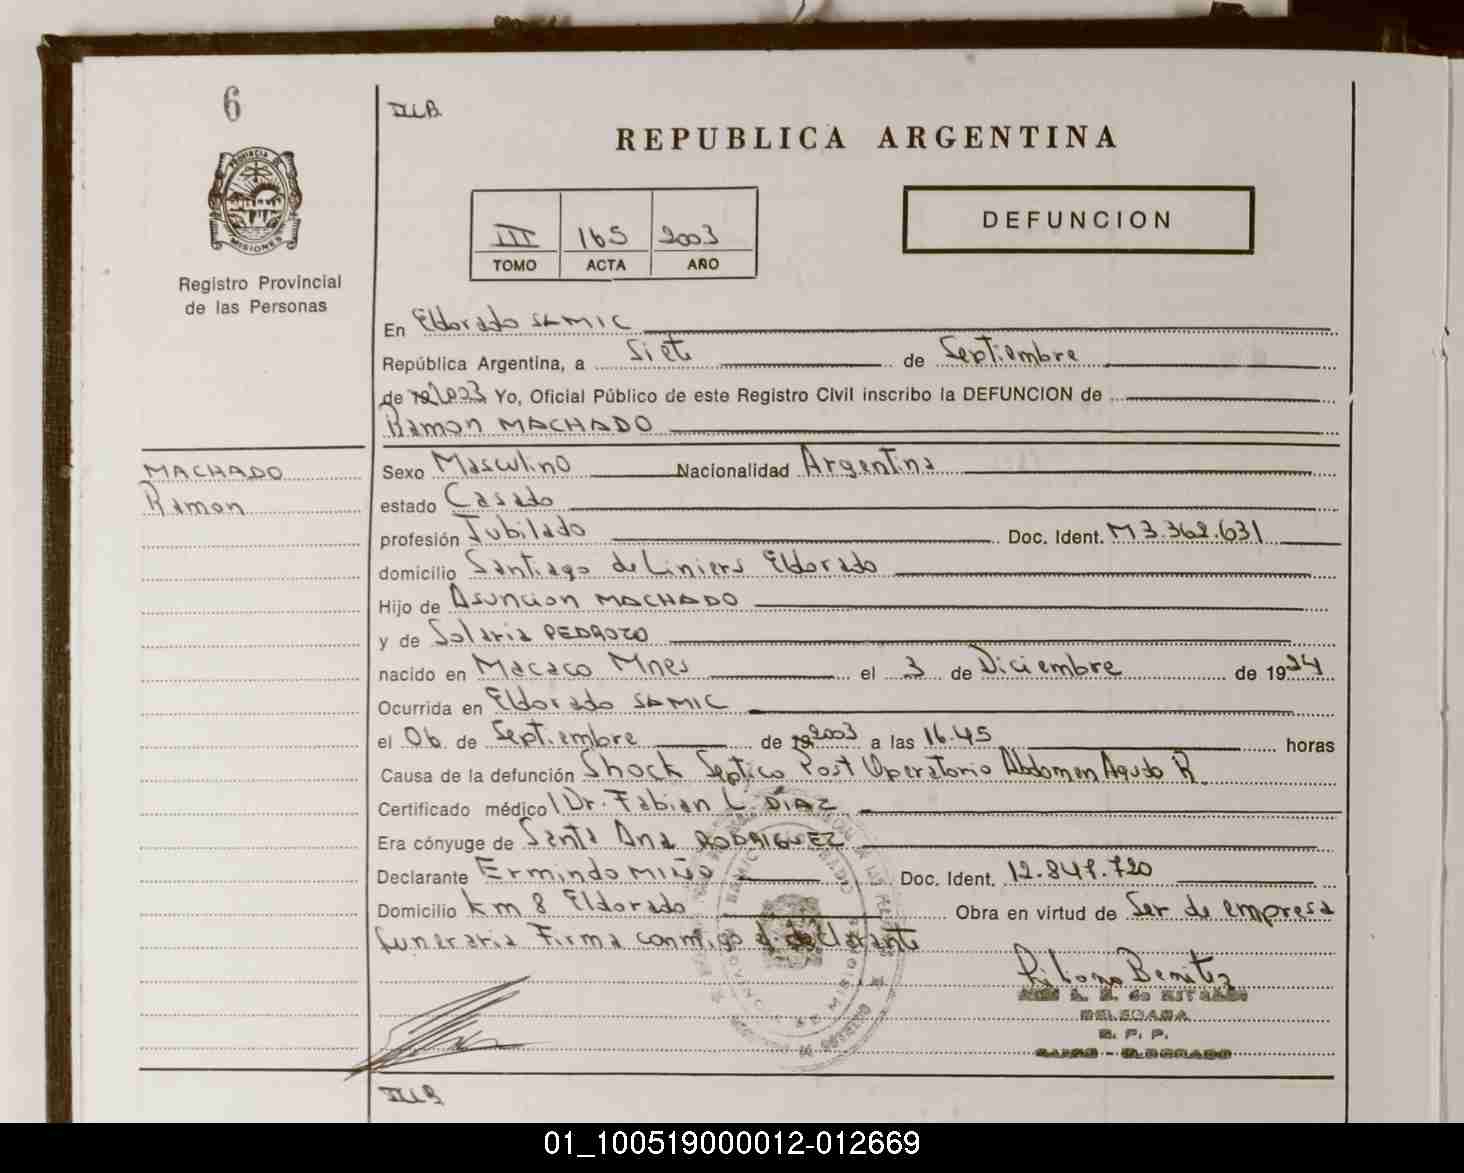 6
III B
REPUBLICA ARGENTINA
PROVINCIA DE MISIONES
Registro Provincial
de las Personas
DEFUNCION
III 165 2003
TOMO ACTA AÑO
En Eldorado SAMIC
República Argentina, a Siete de Septiembre
de 2003 Yo, Oficial Público de este Registro Civil inscribo la DEFUNCION de
Ramon MACHADO
MACHADO
Ramon
Sexo Masculino Nacionalidad Argentina
estado Casado
profesión Jubilado Doc. Ident. M 3.362.631
domicilio Santiago de Liniers Eldorado
Hijo de Asuncion MACHADO
y de Solaria PEDROZO
nacido en Macaco Mnes el 3 de Diciembre de 1924
Ocurrida en Eldorado SAMIC
el 06 de Septiembre de 2003 a las 16.45 horas
Causa de la defunción Shock Septico Post Operatorio Abdomen Agudo R.
Certificado médico Dr. Fabian L. DIAZ
Era cónyuge de Santa Ana RODRIGUEZ
Declarante Ermindo MIÑO Doc. Ident. 12.847.720
Domicilio Km 8 Eldorado Obra en virtud de Ser de empresa
funeraria Firma conmigo el declarante
Benitez
DELEGADA
R. P. P.
SAMIC - ELDORADO
III B
01_100519000012-012669